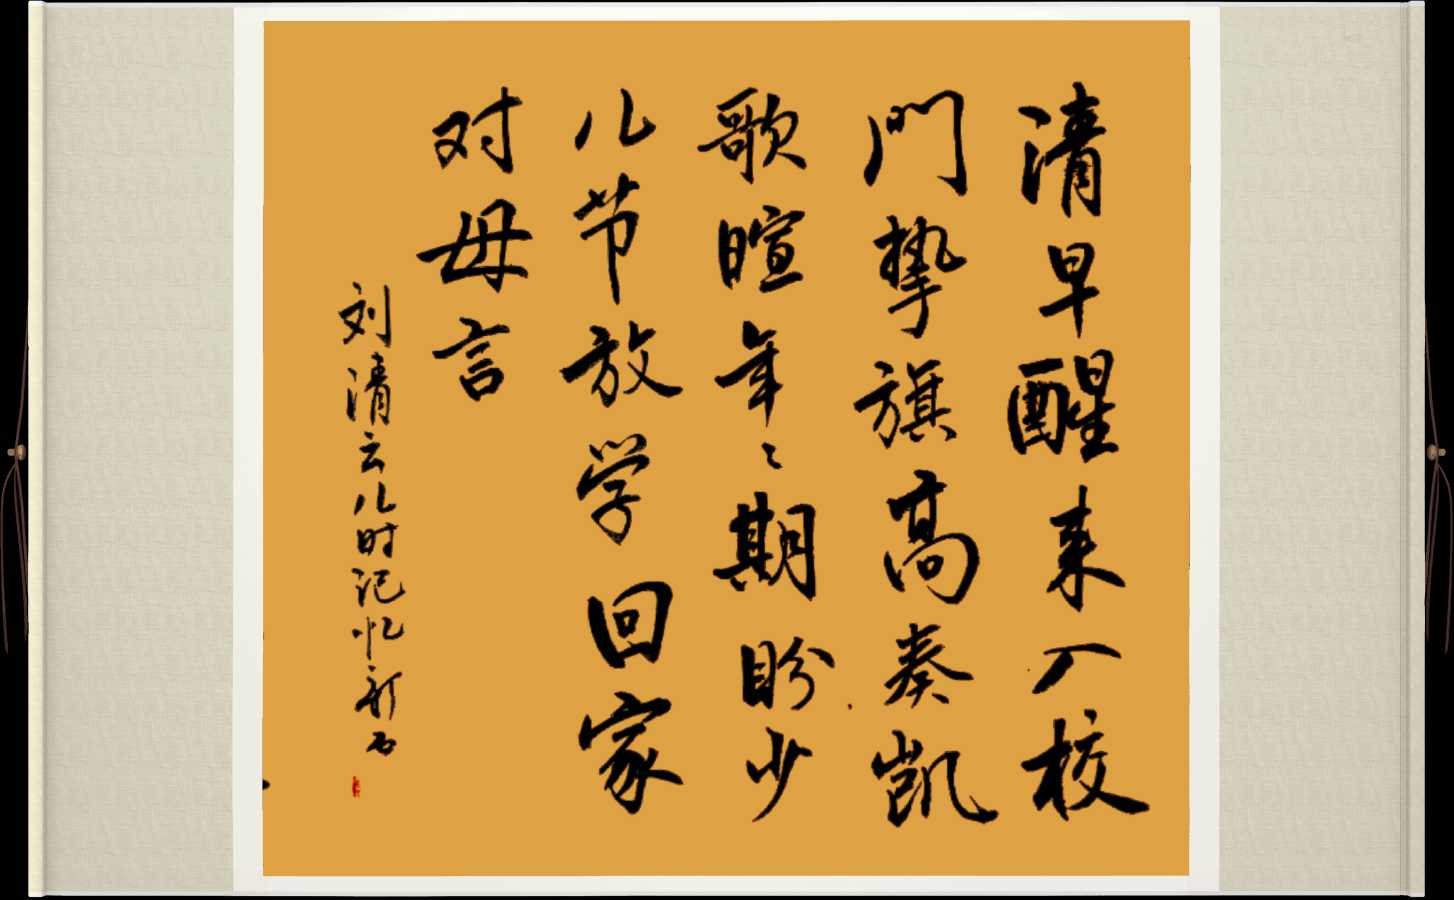 清早醒来入校
門挚旗高奏凯
歌暄年〻期盼少
儿节放学回家
对母言
刘清云儿时记忆新石